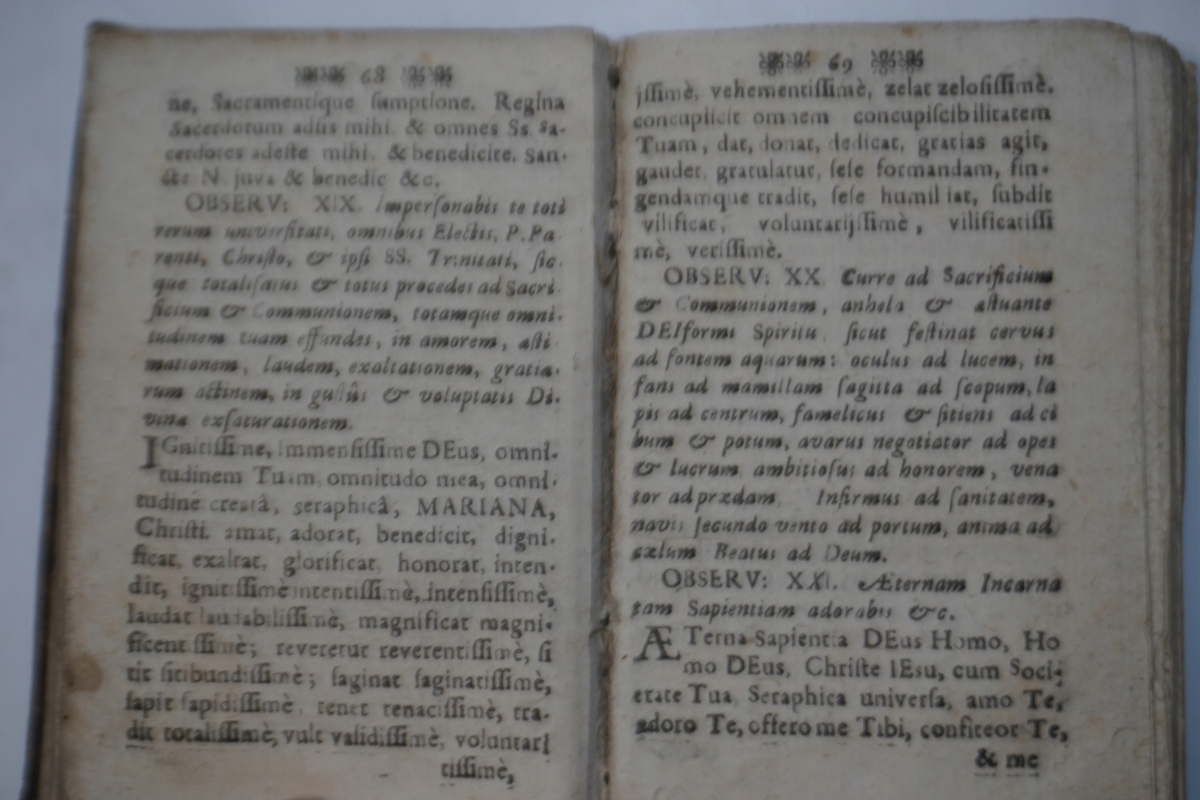 68
ne, Sacramentique sumptione. Regina
Sacerdotum adsis mihi. & omnes Ss. Sa-
cerdotes adeste mihi. & benedicite. San-
cte N. juva & benedic &c.
OBSERV: XIX. Impersonabis te toti
rerum universitati, omnibus Electis, P. Pa
renti, Christo, & ipsi SS. Trinitati, sic-
que totalisatus & totus procedes ad Sacri
ficium & Communionem, totamque omni-
tudinem tuam effundes, in amorem, æsti
mationem, laudem, exaltationem, gratia-
rum actinem, in gustûs & voluptatis Di-
vina exsaturationem.
IGnitissime, immensissime DEus, omni-
tudinem Tuam, omnitudo mea, omni-
tudine creatâ, seraphicâ, MARIANA,
Christi. amat, adorat, benedicit, digni-
ficat, exaltat, glorificat, honorat, inten-
dit, ignitissimè intentissimè, intensissimè,
laudat laudabilissimè, magnificat magni-
ficentissimè; reveretur reverentissimè, si
tit sitibundissimè; saginat saginatissimè,
sapit sapidissimè, tenet tenacissimè, tra-
dit totalissimè, vult validissimè, voluntari
tissimè,
69
jssimè, vehementissimè, zelat zelosissimè.
concupiscit omnem concupiscibilitatem
Tuam, dat, donat, dedicat, gratias agit,
gaudet, gratulatur, sese formandam, fin-
gendamque tradit, sese humiliat, subdit
vilificat, voluntarijssimè, vilificatissi
mè, verissimè.
OBSERV: XX. Curre ad Sacrificium
& Communionem, anhela & æstuante
DEIformi Spiritu, sicut festinat cervus
ad fontem aquarum: oculus ad lucem, in
fans ad mamillam sagitta ad scopum, la
pis ad centrum, famelicus & sitiens ad ci
bum & potum, avarus negotiator ad opes
& lucrum ambitiosus ad honorem, vena
tor ad prædam. Infirmus ad sanitatem,
navis secundo vento ad portum, anima ad
cælum Beatus ad Deum.
OBSERV: XXI. Æternam Incarna
tam Sapientiam adorabis &c.
ÆTerna Sapientia DEus Homo, Ho
mo DEus, Christe IEsu, cum Soci-
etate Tua Seraphica universa, amo Te,
adoro Te, offero me Tibi, confiteor Te,
& me